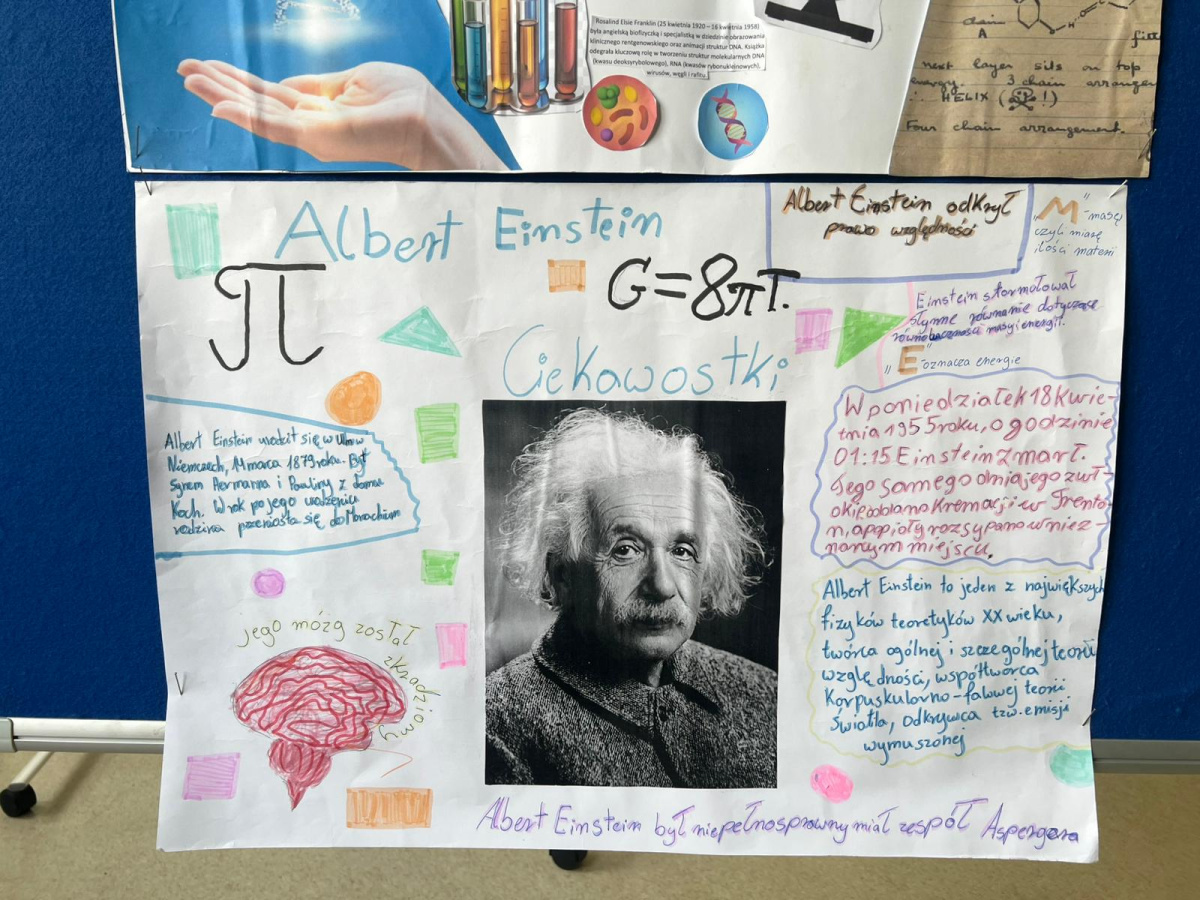 Rosalind Elsie Franklin (25 kwietnia 1920 – 16 kwietnia 1958)
była angielską biofizyczką i specjalistką w dziedzinie obrazowania
klinicznego rentgenowskiego oraz animacji struktur DNA. Książka
odegrała kluczową rolę w tworzeniu struktur molekularnych DNA
(kwasu deoksyrybolowego), RNA (kwasów rybonukleinowych),
wirusów, węgli i rafitu.
chain
A
next layer sits on top
3 chain arrangem
∴ HELIX ( !)
Four chain arrangement.
Albert Einstein
π
G=8πT.
Ciekawostki
Albert Einstein odkrył
prawo względności
"M" -masę
czyli miasę
ilości materii
Einstein sformołował
słynne równanie dotyczące
równoważności masy i energii.
"E" oznacza energie
Albert Einstein urodził się w Ulm w
Niemczech, 14 marca 1879 roku. Był
synem Hermanna i Pauliny z domu
Koch. W rok po jego urodzeniu
rodzina przeniosła się do Monachium
W poniedziałek 18 kwie-
tnia 1955 roku, o godzinie
01:15 Einstein zmarł.
Jego samego dnia jego zwł-
oki poddano kremacji w Trento-
n, a popioły rozsypano w niez-
nanym miejscu.
jego mózg został
zkradziony
Albert Einstein to jeden z największych
fizyków teoretyków XX wieku,
twórca ogólnej i szczególnej teorii
względności, współtwórca
Korpuskularno-falowej teorii
światła, odkrywca tzw. emisji
wymuszonej
Albert Einstein był niepełnosprawny miał zespół Aspergera